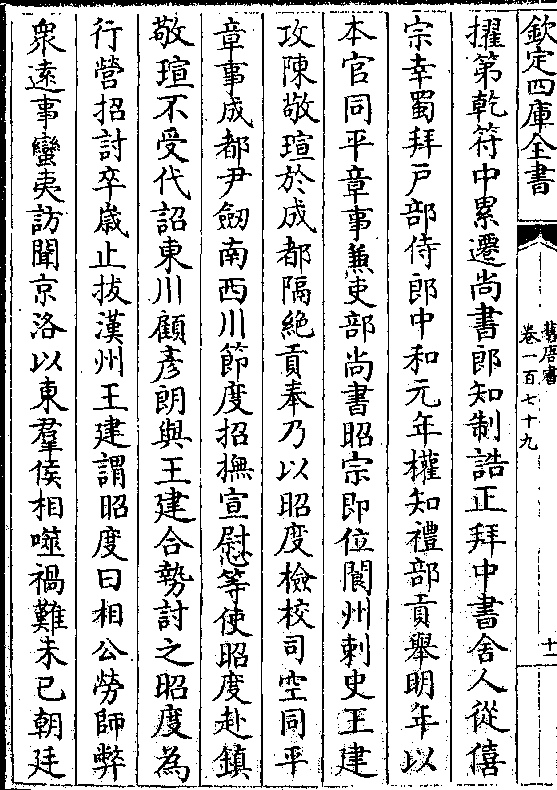 欽定四庫全書
舊唐書
卷一百七十九
十一
擢第乾符中累遷尚書郎知制誥正拜中書舍人從僖
宗幸蜀拜戸部侍郎中和元年權知禮部貢舉明年以
本官同平章事兼吏部尚書昭宗即位閬州刺史王建
攻陳敬瑄於成都隔絶貢奉乃以昭度檢校司空同平
章事成都尹劒南西川節度招撫宣慰等使昭度赴鎮
敬瑄不受代詔東川顧彦朗與王建合勢討之昭度為
行營招討卒嵗止拔漢州王建謂昭度曰相公勞師弊
衆逺事蠻夷訪聞京洛以東羣侯相噬禍難未已朝廷